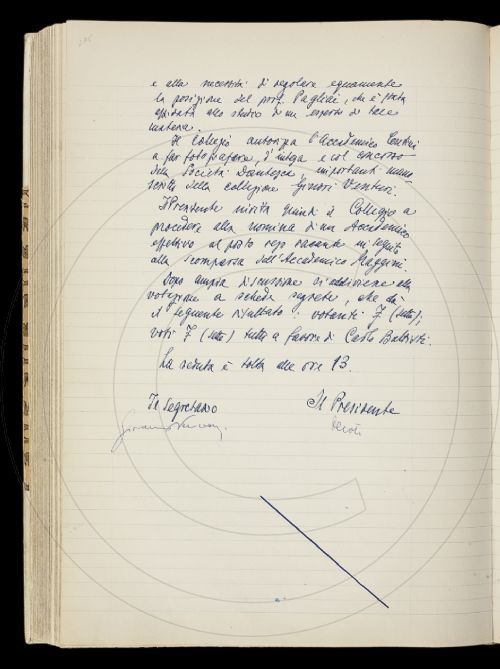 e alla necessità di regolare equamente
la posizione del prof. Pagliai, che è stata
affidata allo studio di un esperto di tale
materia.
Il Collegio autorizza l'Accademico Contini
a far fotografare, d'intesa e col concorso
della Società Dantesca, importanti mano
scritti della collezione Ginori Venturi.
Il Presidente invita quindi il Collegio a
procedere alla nomina di un Accademico
effettivo al posto reso vacante in seguito
alla scomparsa dell'Accademico Maggini.
Dopo ampia discussione si addiviene alla
votazione a schede segrete, che dà
il seguente risultato: votanti 7 (sette);
voti 7 (sette) tutti a favore di Carlo Battisti.
La seduta è tolta alle ore 13.
Il Segretario Il Presidente
Devoto